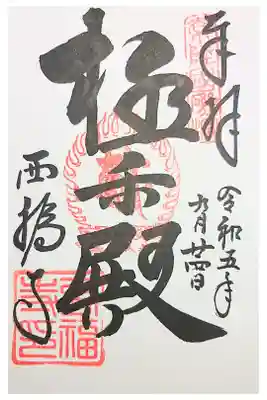 奉拝
令和五年
九月廿四日
極楽殿
西福寺